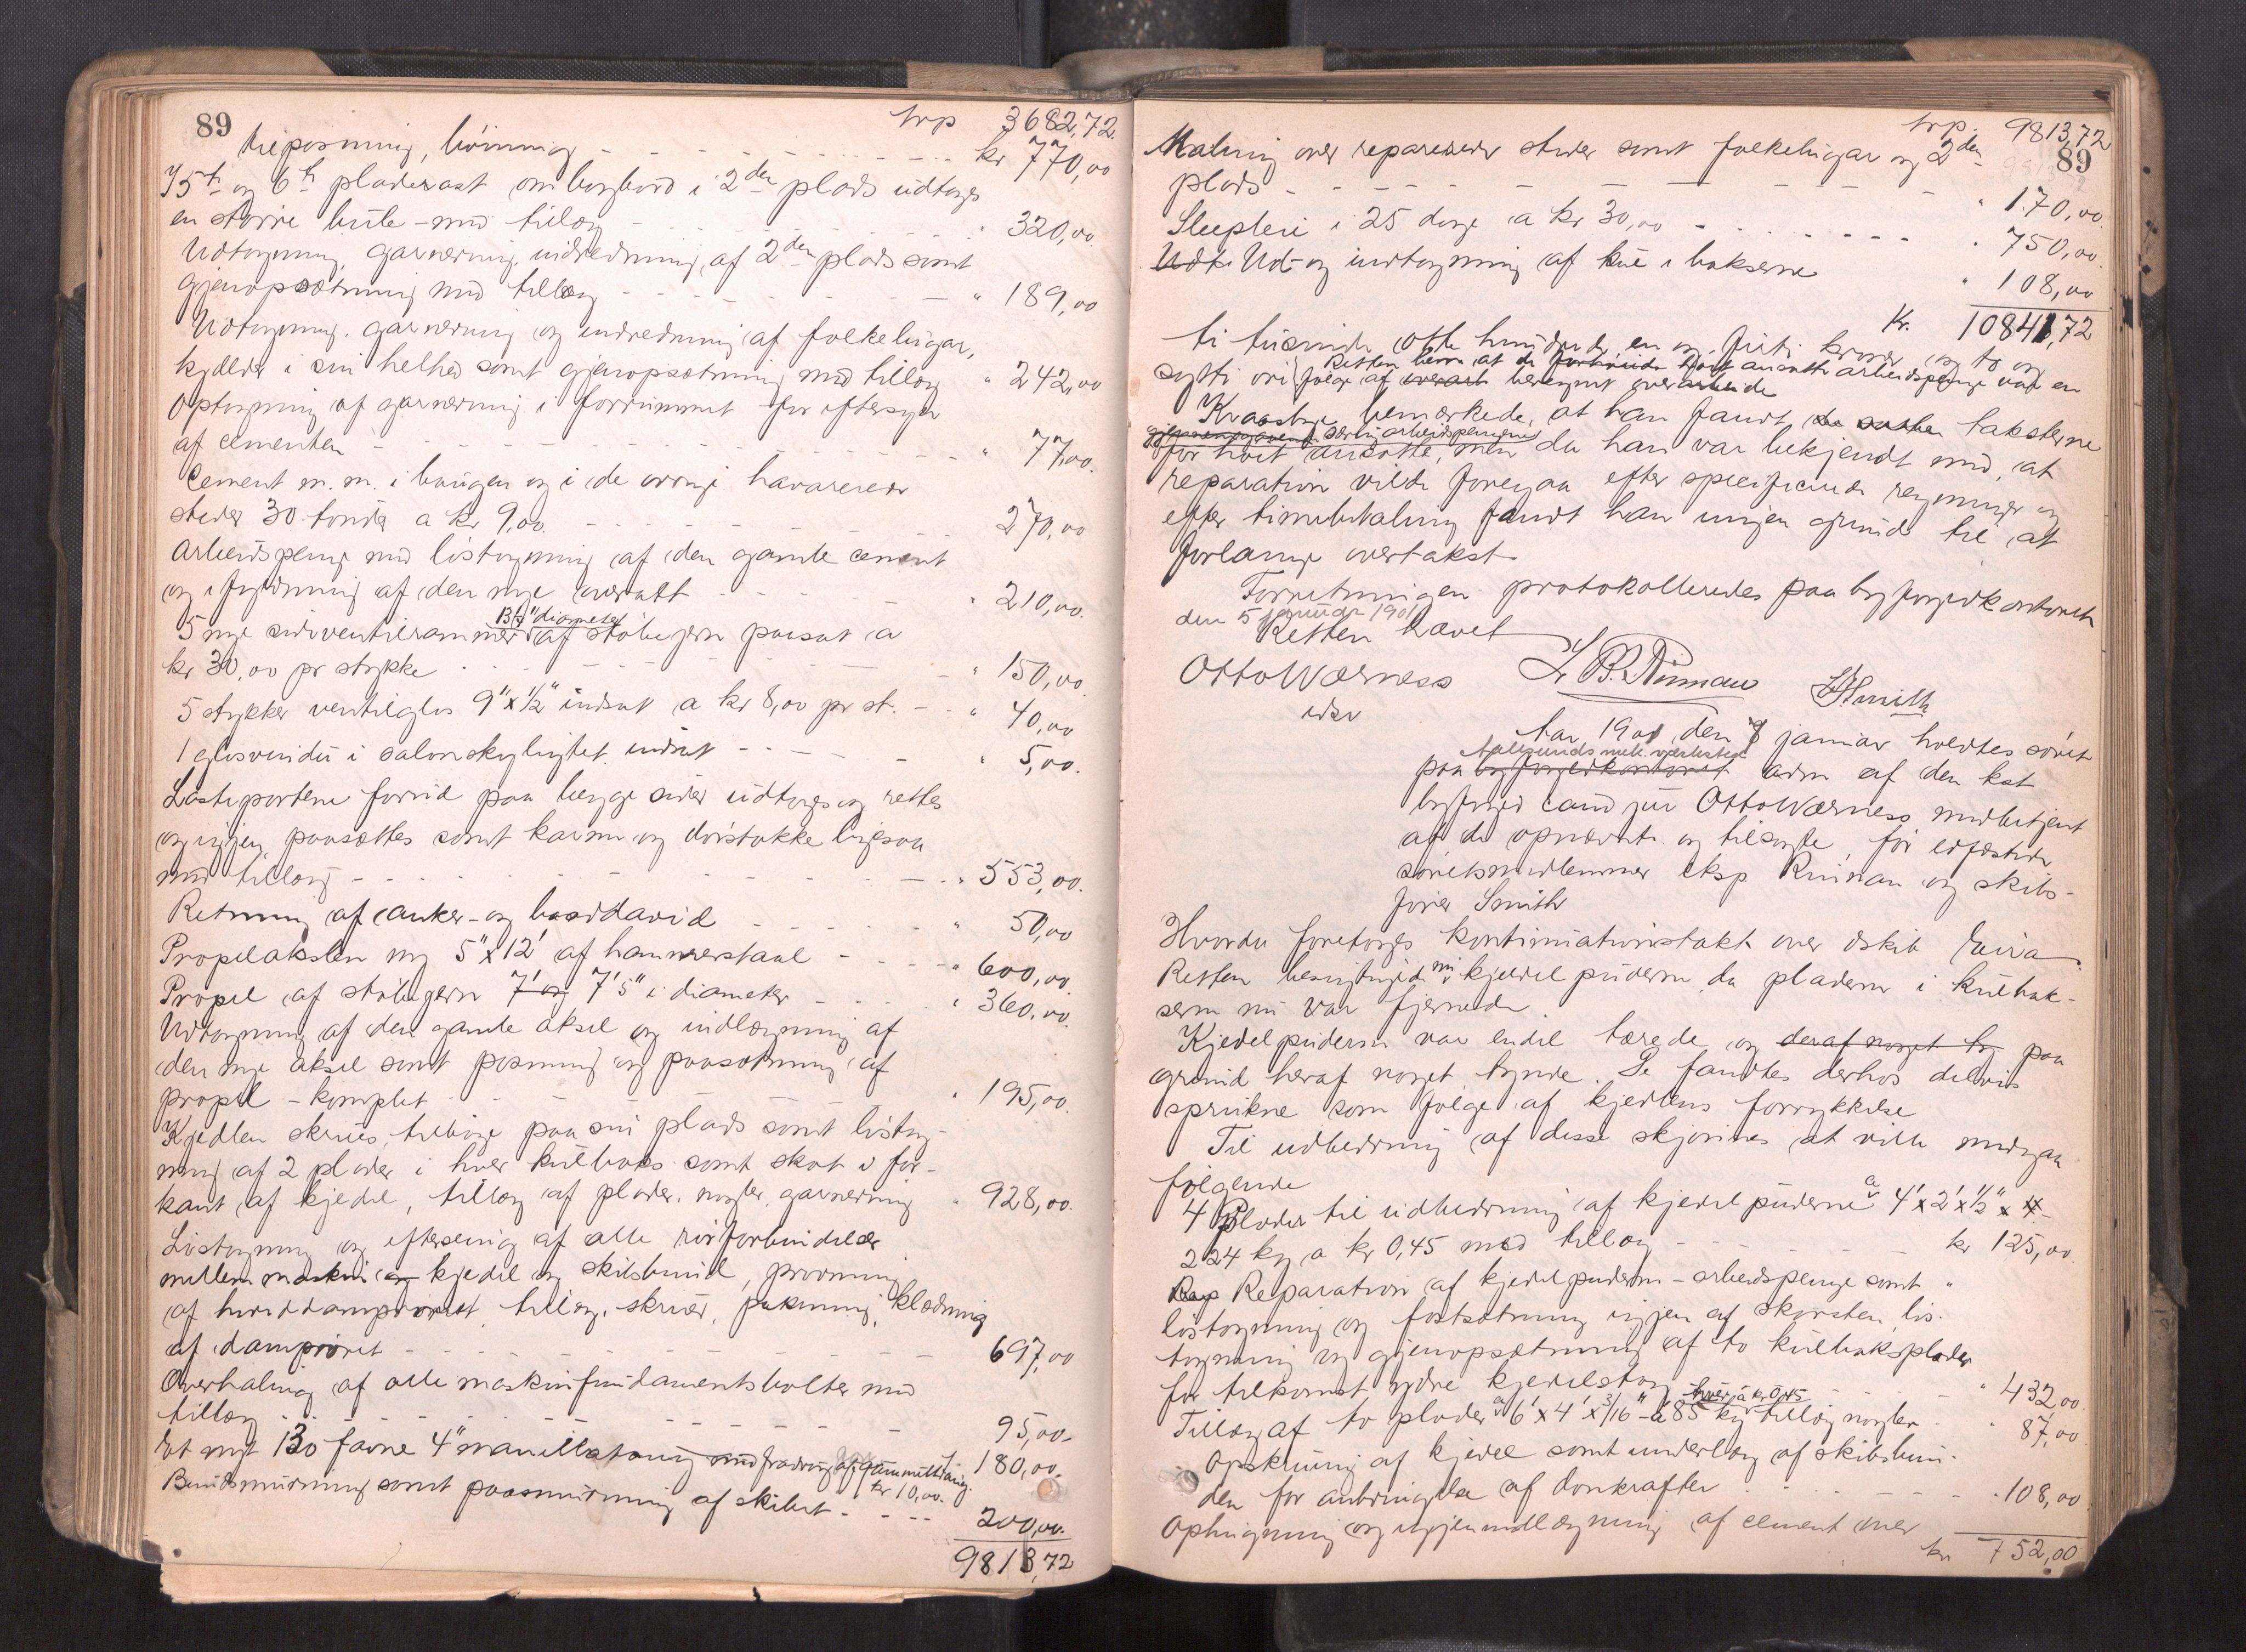 89
trp 3682,72.
tilpasning, boining kr 770,00
I 5te og 6te platerast om bagbord i 2den plads udtoges
en større bule med tillæg " 320,00.
Udtagning, garnering, indredning af 2den plads samt
gjenopsætning med tillæg " 189,00
Udtagning, garnering og indredning af folkelugar,
kjelder i sin helhed samt gjenopsætning med tillæg " 242,00
Optagning af garnering i forrummet for eftersyn
af cementen " 77,00.
Cement m. m. i baugen og i de øvrige havarerede
steder 30 tønder a kr 9,00 270,00
Arbeidspenge med løstagning af den gamle cement
og ifyldning af den nye overalt " 210,00.
5 nye sideventilrammer af støbejern paasat a
kr 30,00 pr stykke " 150,00.
5 stykker ventilglas 9" x 1/2" indsat a kr 8,00 pr st. " 40,00
1 glasvindu i salonskylightet indsat " 5,00.
Lasteportene forud paa begge sider udtoges og rettes
og igjen paasættes samt karme og dørstokke ligesaa
med tillæg " 553,00.
Retning af anker- og baaddavid " 50,00
Propelakslen ny 5" x 12' af hammerstaal " 600,00.
Propel af støbejern 7' og 7' 5" i diameter " 360,00.
Udtagning af den gamle aksel og indlægning af
den nye aksel samt pasning og paasætning af
propel - komplet " 195,00.
Kjedlen skrues tilbage paa sin plads samt løstag-
ning af 2 plader i hver kulboks samt skot i for-
kant af kjedel, tillæg af plader, nagler, garnering " 928,00.
Løstagning og eftersening af alle rørforbindelser
mellem maskin og kjedel og skibsbund, prøvning
af hoveddamprøret, tillæg, skruer, pakning, klædning
af damprøret 697,00
Overhaling af alle maskinfundamentsbolter med
tillæg 95,00
Et nyt 130 favne 4" manillatoug med fradrag af gammelt toug kr 10,00. 180,00.
Bundsmurning samt paasmurning af skibet 200,00.
9813,72
trp. 9813,72
89
Maling over reparerede steder samt folkelugar og 2den
plads " 170,00.
Slipleie i 25 dage a kr 30,00 " 750,00.
Udt. Ud- og indtagning af kul i bokserne " 108,00
Kr. 10841,72
ti tusinde otte hundrede en og firti kroner og to og
sytti øre
Retten bem. at de høit ansatte arbeidspenge var en
følge af beregnet overarbeide
bemærkede, at han fandt taksterne
for høit ansatte, men da han var bekjendt med, at
reparation vilde foregaa efter specificerede regninger og
efter timebetaling fandt han ingen grund til at
forlange overtakst.
Forretningen protokolleredes paa byfogedkontoret
den 5 januar 1901
Retten hævet
Otto Værness
edsv
Smith
Aar 1901 den 8 januar holdtes søret
paa byfogedkontoret Aalesunds mek. værksted adm af den kst
byfoged cand jur Otto Værness medbetjent
af de opnævnte og tilsagte, før edfæstede
søretsmedlemmer eksp Rinnan og skibs-
fører Smith
Hvorda foretoges kontinuationstakt over dskib Eira
Retten besigtiged nu kjedelpuderne da pladerne i kulbok-
serne nu var fjernede.
Kjedelpuderne var endel tærede og deraf noget ty paa
grund heraf noget tynde. De fandtes derhos delvis
sprukne som følge af kjedlens forrykkelse
Til udbedring af disse skjønnes at ville medgaa
følgende
4 plader til udbedring af kjedelpuderne a 4' x 2' x 1/2"
224 kg a kr 0,45 med tillæg kr 125,00.
Rep Reparation af kjedelpuderne - arbeidspenge samt
løstagning og fastsætning igjen af skorsten, løs-
tagning og gjenopsætning af to kulboksplader
for tilkomst ydre kjedelstag " 432,00.
Tillæg af to plader a 6' x 4' x 3/16" - a 85 kg hver a kr 0,45 tillæg nagler " 87,00
Opskruing af kjedel samt underlag af skibsbun-
den for anbringelse af donkrafter " 108,00
Ophugning og igjenindlægning af cement over
kr 752,00